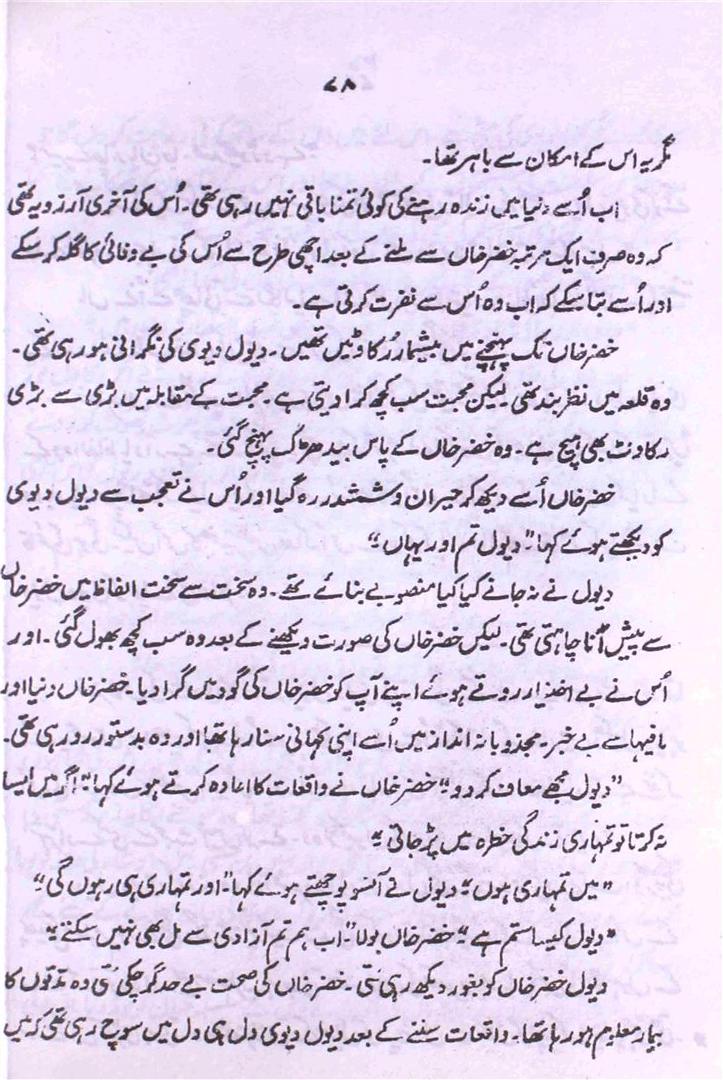 ۷۸
مگر یہ اس کے امکان سے باہر تھا۔
اب اُسے دنیا میں زندہ رہنے کی کوئی تمنا باقی نہیں رہی تھی۔ اُس کی آخری آرزو یہ تھی
کہ وہ صرف ایک مرتبہ خضر خاں سے ملنے کے بعد اچھی طرح سے اُس کی بے وفائی کا گلہ کر سکے
اور اُسے بتا سکے کہ اب وہ اُس سے نفرت کرتی ہے۔
خضر خاں تک پہنچنے میں بیشمار رُکاوٹیں تھیں۔ دیول دیوی کی نگرانی ہو رہی تھی۔
وہ قلعہ میں نظر بند تھی لیکن محبت سب کچھ کرا دیتی ہے۔ محبت کے مقابلہ میں بڑی سے بڑی
رکاوٹ بھی ہیچ ہے۔ وہ خضر خاں کے پاس بیدھڑک پہنچ گئی۔
خضر خاں اُسے دیکھ کر حیران و ششدر رہ گیا اور اُس نے تعجب سے دیول دیوی
کو دیکھتے ہوئے کہا: "دیول تم اور یہاں؟"
دیول نے نہ جانے کیا کیا منصوبے بنائے تھے۔ وہ سخت سے سخت الفاظ میں خضر خاں
سے پیش آنا چاہتی تھی۔ لیکن خضر خاں کی صورت دیکھنے کے بعد وہ سب کچھ بھول گئی۔ اور
اُس نے بے اختیار روتے ہوئے اپنے آپ کو خضر خاں کی گود میں گرا دیا۔ خضر خاں دنیا اور
مافیہا سے بے خبر۔ مجذوبانہ انداز میں اُسے اپنی کہانی سنا رہا تھا اور وہ بدستور رو رہی تھی۔
"دیول مجھے معاف کر دو۔" خضر خاں نے واقعات کا اعادہ کرتے ہوئے کہا: "اگر میں ایسا
نہ کرتا تو تمہاری زندگی خطرہ میں پڑ جاتی۔"
"میں تمہاری ہوں۔" دیول نے آنسو پوچھتے ہوئے کہا "اور تمہاری ہی رہوں گی۔"
"دیول کیسا ستم ہے۔" خضر خاں بولا "اب ہم تم آزادی سے مل بھی نہیں سکتے۔"
دیول خضر خاں کو بغور دیکھ رہی تھی۔ خضر خاں کی صحت بے حد گر چکی تھی وہ مدتوں کا
بیمار معلوم ہو رہا تھا۔ واقعات سننے کے بعد دیول دیوی دل ہی دل میں سوچ رہی تھی کہ میں